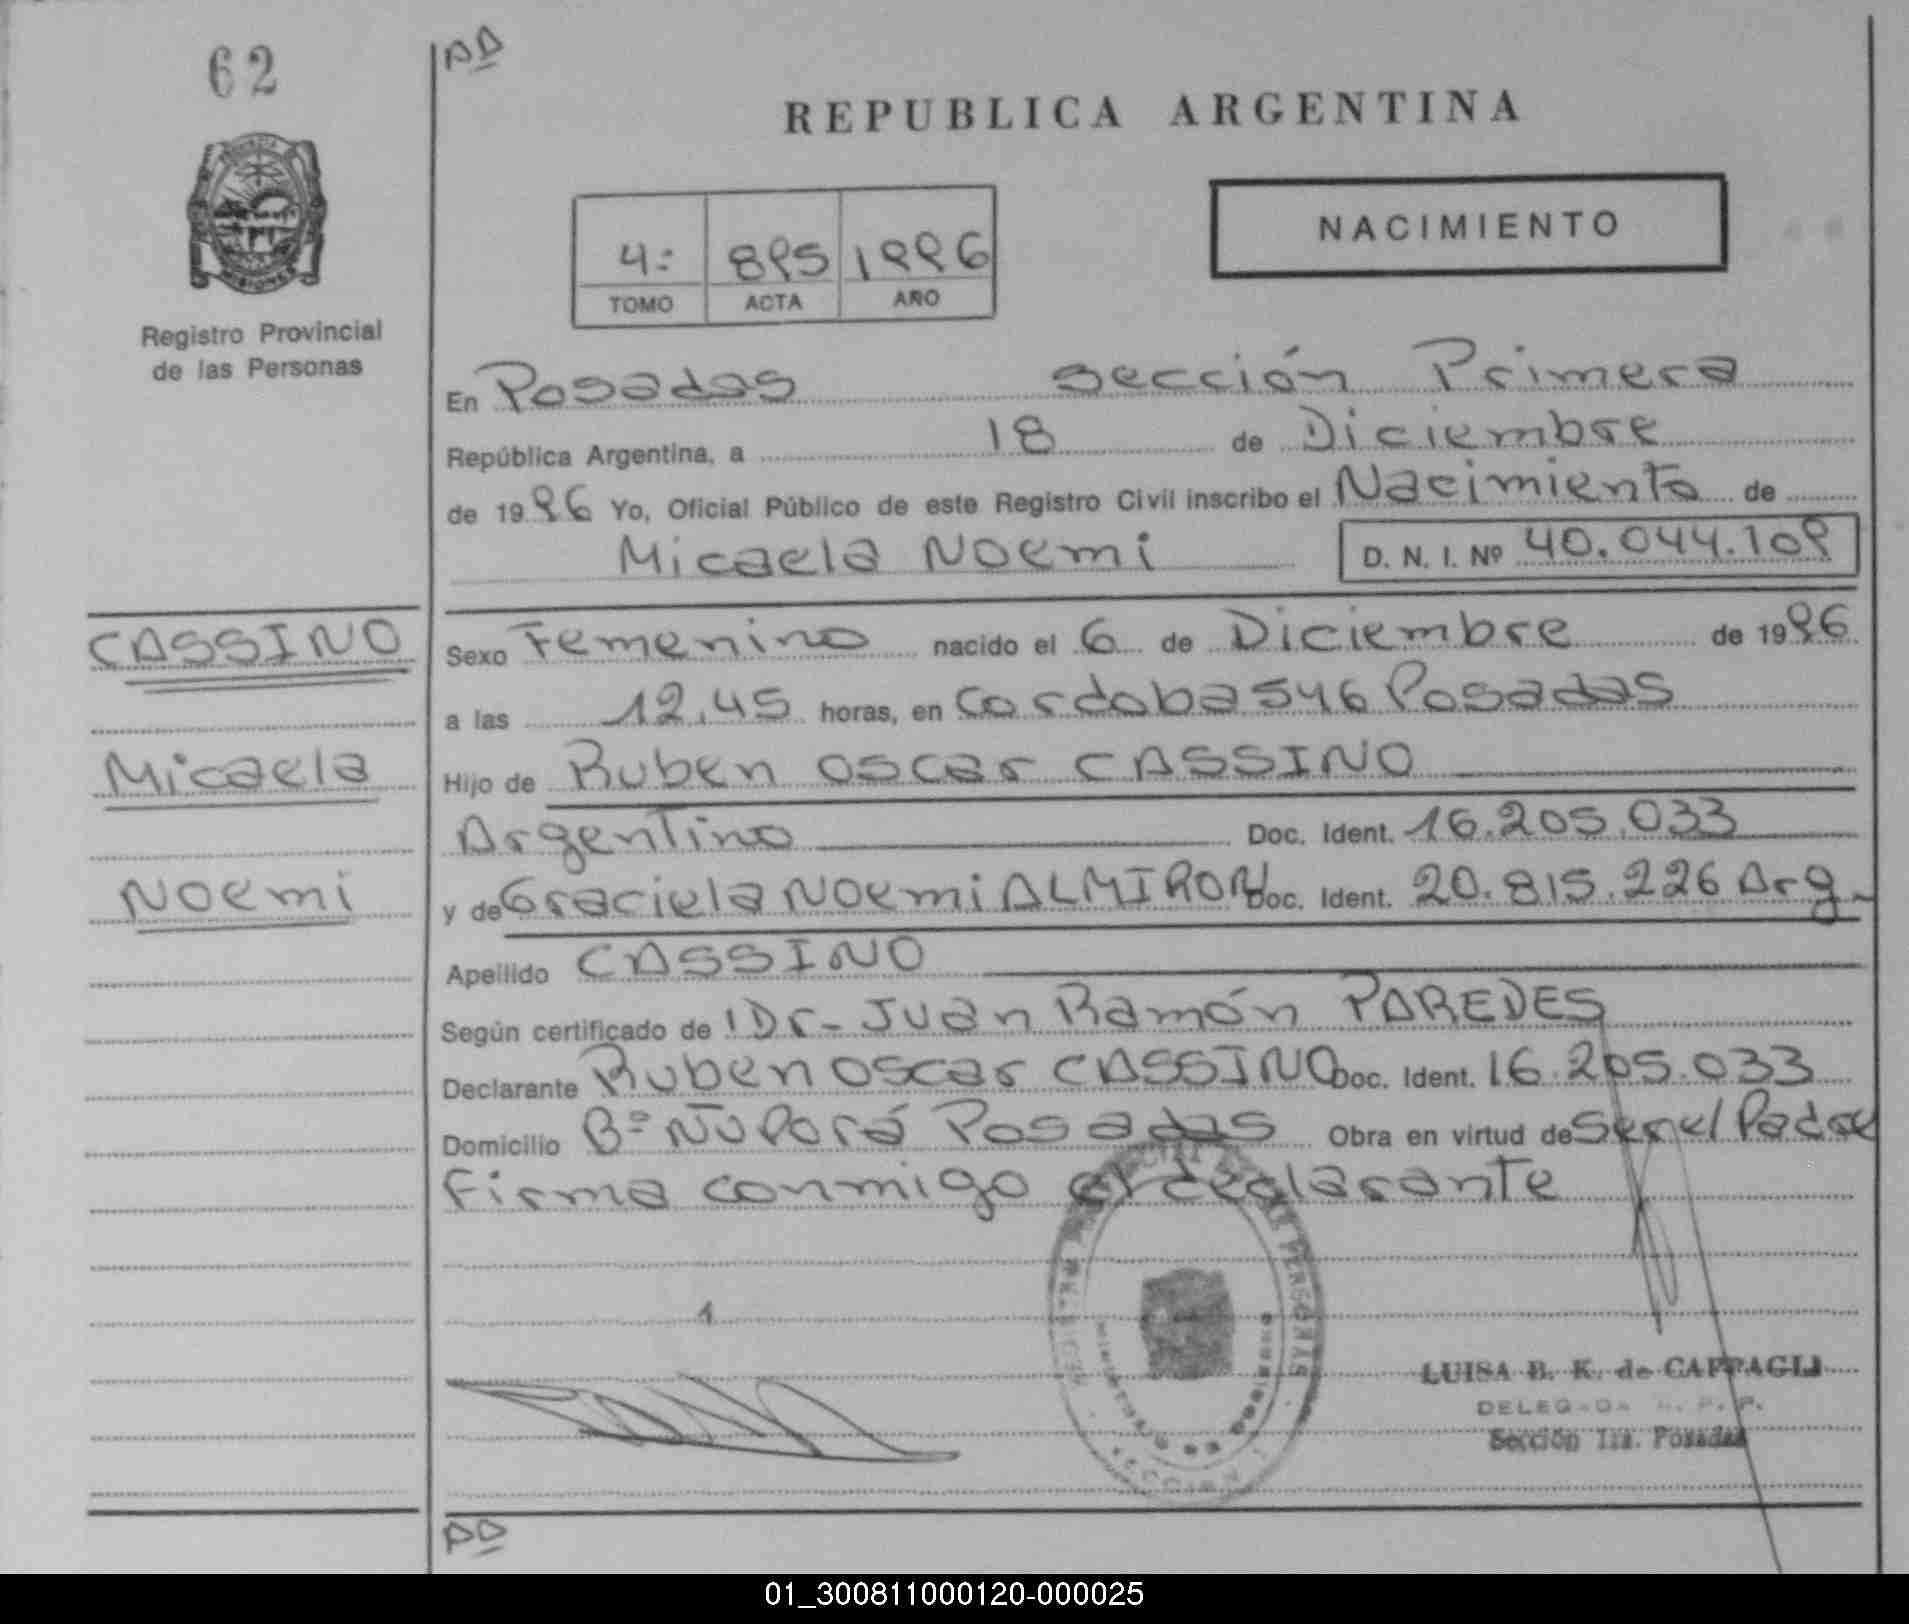 62
AA
REPUBLICA ARGENTINA
NACIMIENTO
4: 895 1996
TOMO ACTA AÑO
Registro Provincial
de las Personas
En Posadas sección Primera
República Argentina, a 18 de Diciembre
de 1996 Yo, Oficial Público de este Registro Civil inscribo el Nacimiento de
Micaela Noemi D. N. I. Nº 40.044.109
CASSINO
Micaela
Noemi
Sexo Femenino nacido el 6 de Diciembre de 1996
a las 12,45 horas, en Cordoba 546 Posadas
Hijo de Ruben Oscar CASSINO
Argentino Doc. Ident. 16.205.033
y de Graciela Noemi ALMIRON Doc. Ident. 20.815.226 Arg.
Apellido CASSINO
Según certificado de Dr. Juan Ramón PAREDES
Declarante Ruben Oscar CASSINO Doc. Ident. 16.205.033
Domicilio Bº Ñu Porá Posadas Obra en virtud de Ser el Padre
Firma conmigo el declarante
LUISA B. K. de CAFFAGLI
DELEGADA R. P. P.
Sección 1ra. Posadas
01_300811000120-000025